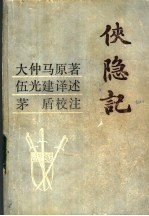 侠隐记
大仲马原著
伍光建译述
茅盾校注